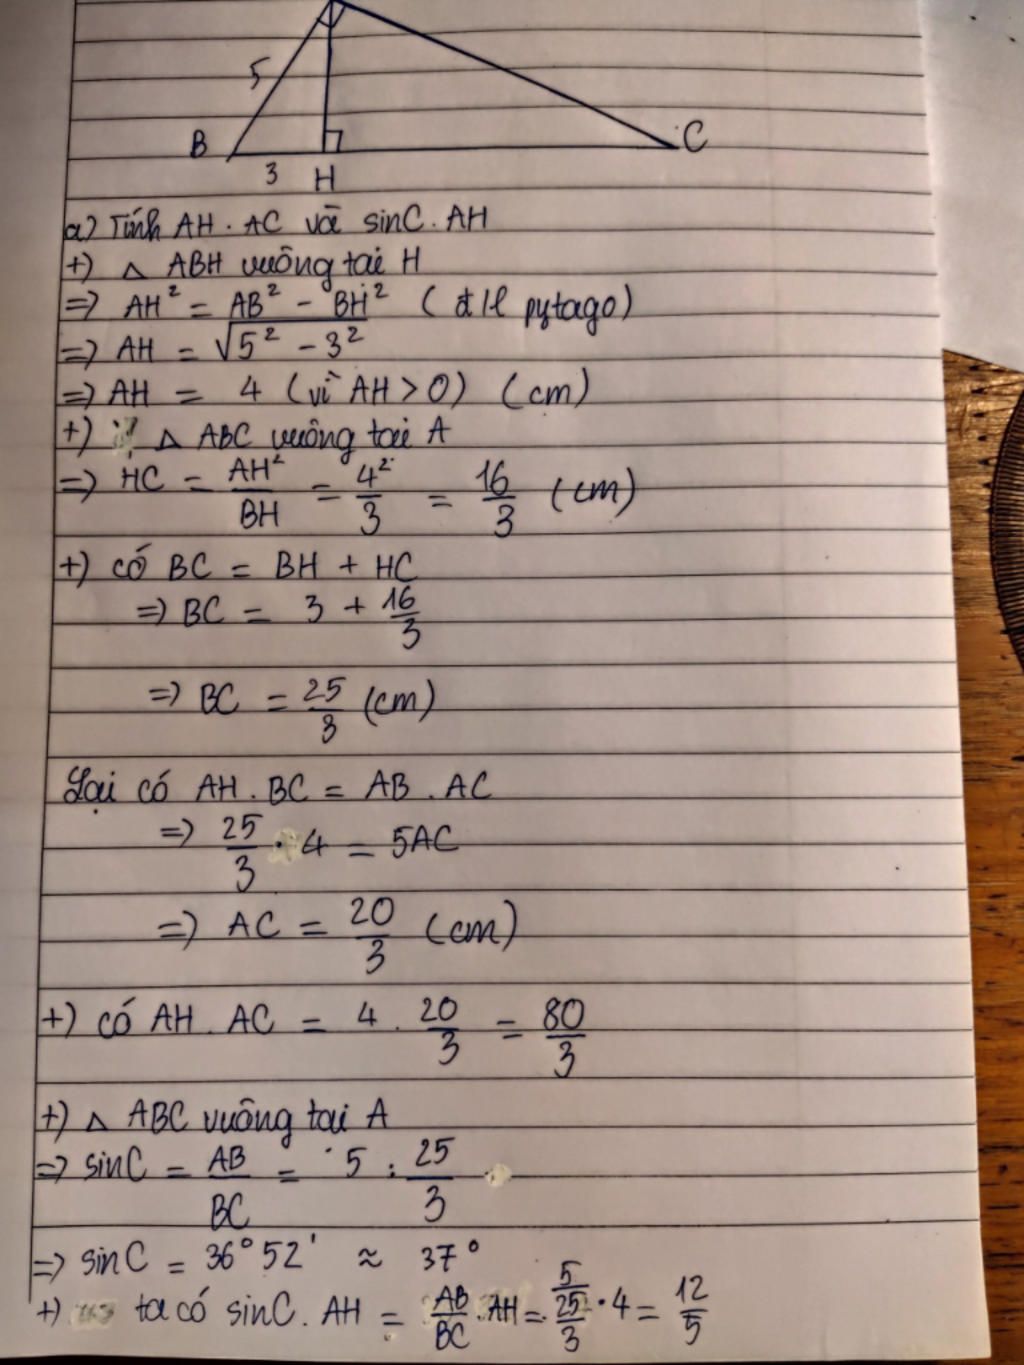 5
B
C
3
H
a) Tính AH . AC và sinC . AH
+) △ ABH vuông tại H
=> AH² = AB² - BH² ( đ/l pytago)
=> AH = √5² - 3²
=> AH = 4 (vì AH > 0) (cm)
+) △ ABC vuông tại A
=> HC = AH²/BH = 4²/3 = 16/3 (cm)
+) có BC = BH + HC
=> BC = 3 + 16/3
=> BC = 25/3 (cm)
Lại có AH . BC = AB . AC
=> 25/3 . 4 = 5AC
=> AC = 20/3 (cm)
+) có AH . AC = 4 . 20/3 = 80/3
+) △ ABC vuông tại A
=> sinC = AB/BC = 5 : 25/3
=> sinC = 36° 52' ≈ 37°
+) ta có sinC . AH = AB/BC . AH = 5/(25/3) . 4 = 12/5